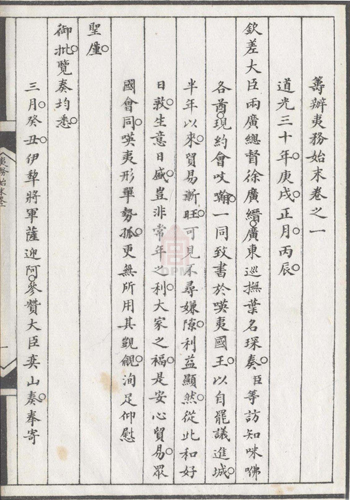 籌辦夷務始末卷之一
道光三十年庚戌正月丙辰
欽差大臣兩廣總督徐廣縉廣東巡撫葉名琛奏臣等訪知咪咈
各酋現約會咬𠺕一同致書於嘆夷國王以自罷議進城
半年以來貿易漸旺可見不尋嫌隙利益顯然從此和好
日敦生意日盛豈非常年之利大家之福是安心貿易眾
國會同嘆夷形單勢孤更無所用其覬覦洵足仰慰
聖廑
御批覽奏均悉
三月癸丑伊犂將軍薩迎阿參贊大臣奕山奏奉寄